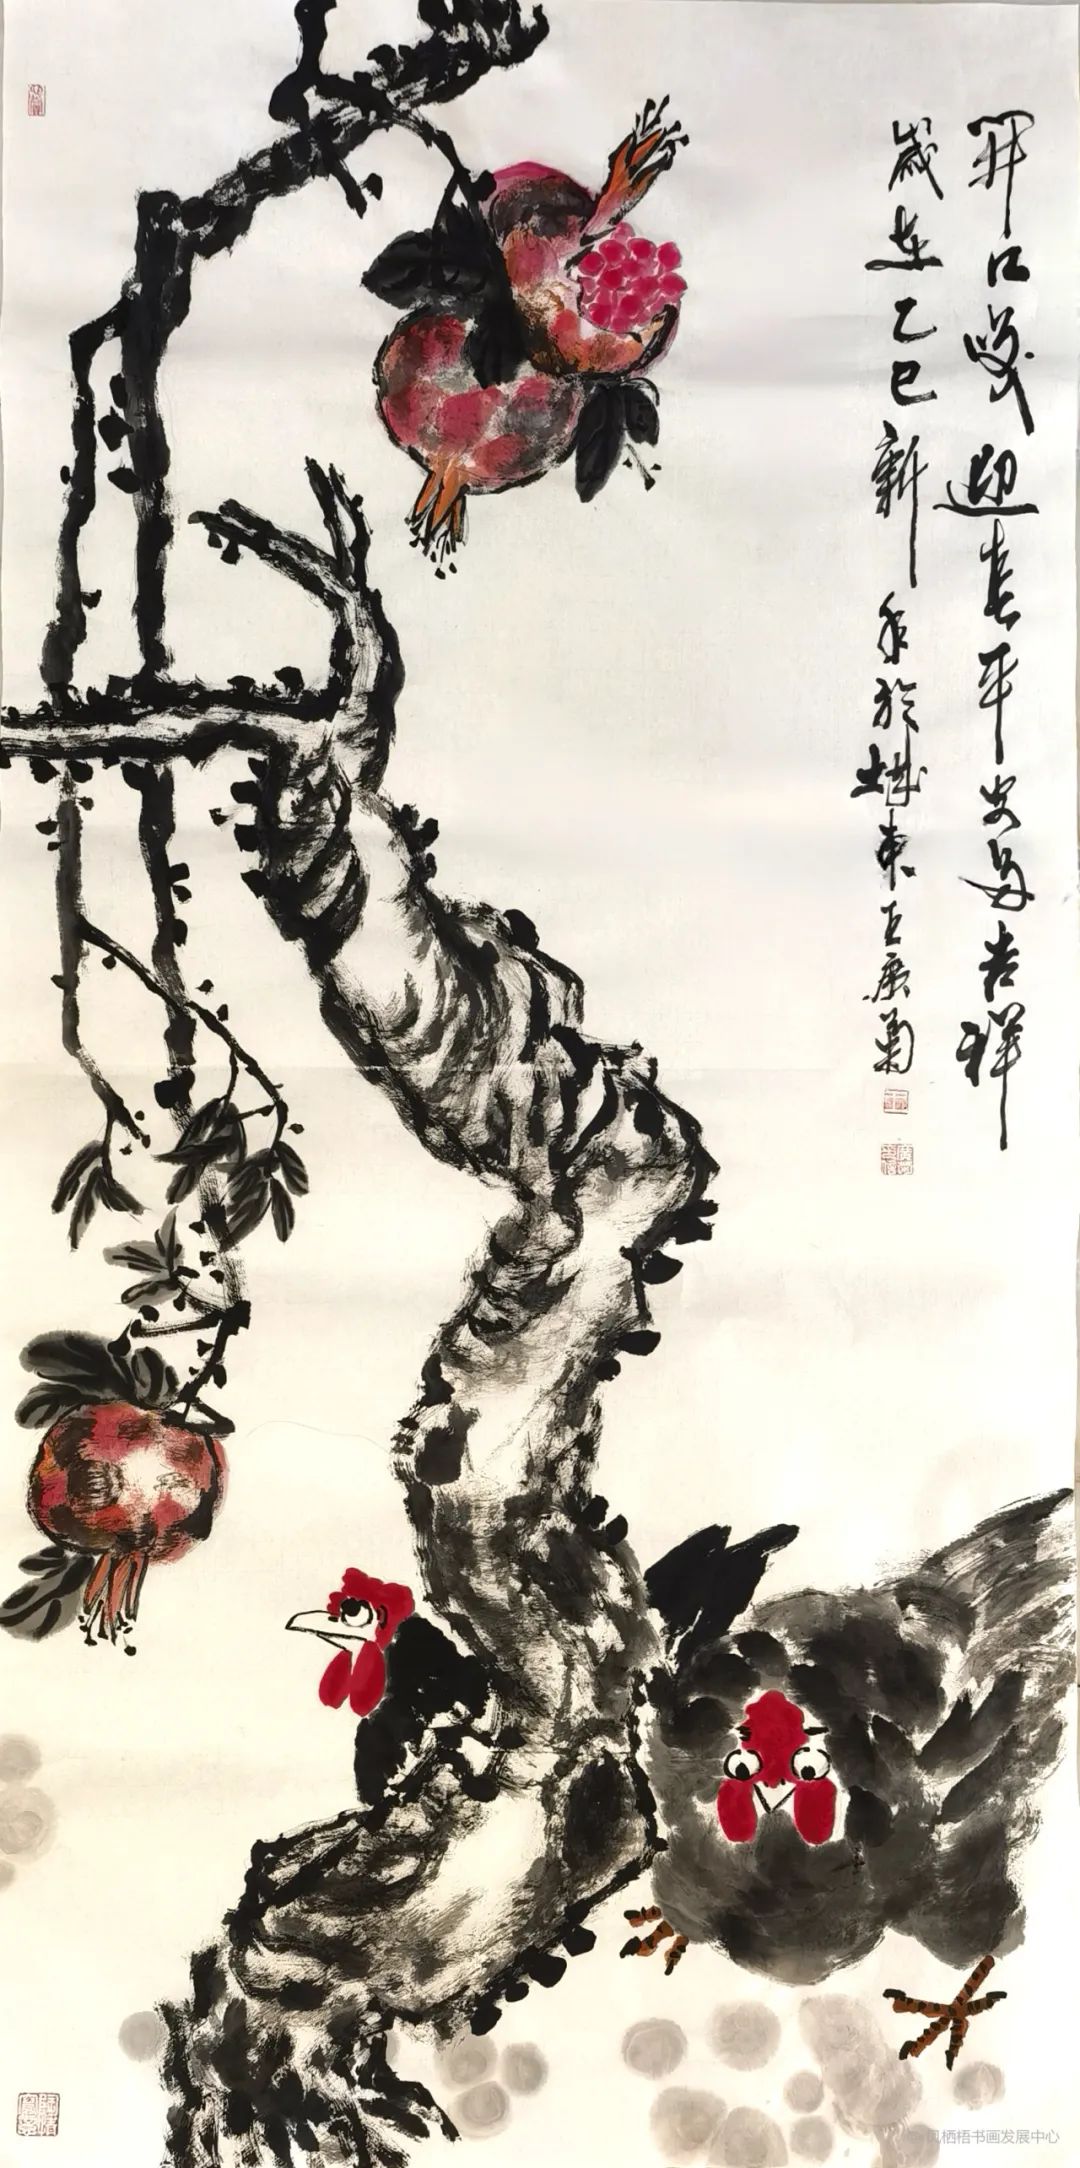 开口笑迎春平安多吉祥
岁在乙巳新年於城东王广菊
凤栖梧书画发展中心